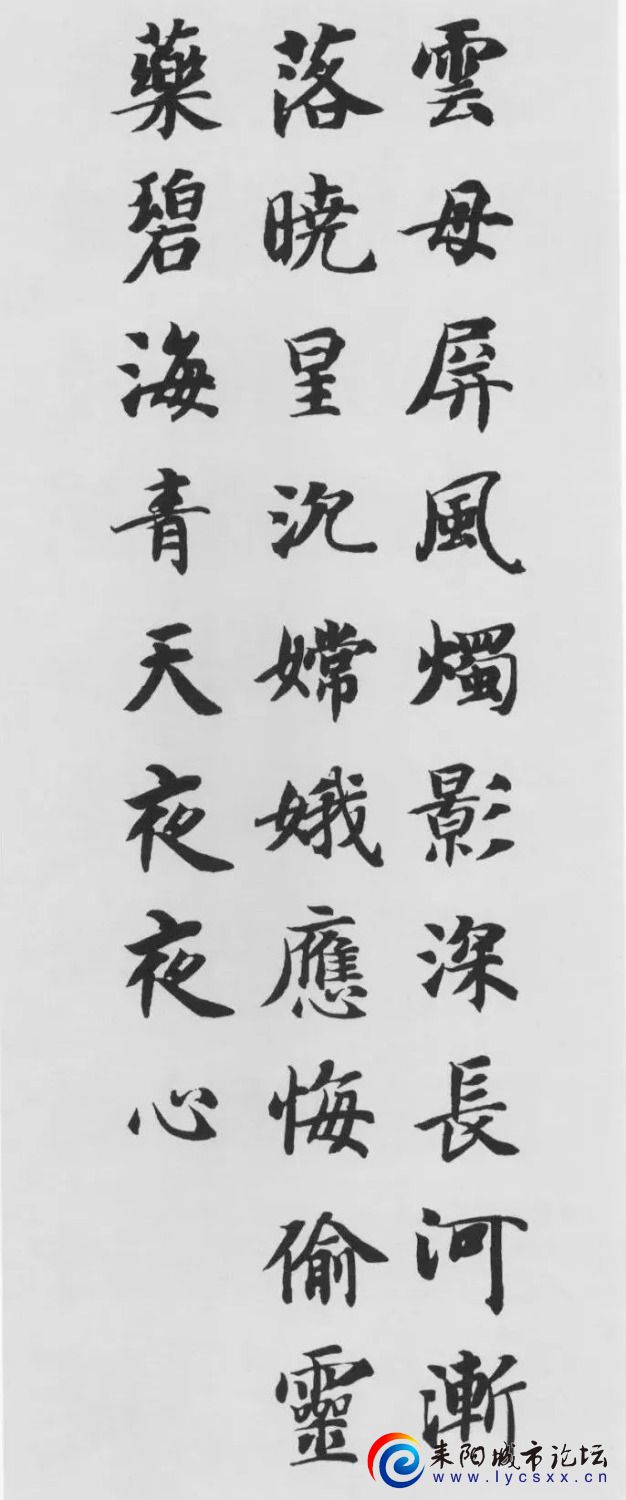 雲母屏風燭影深長河漸
落曉星沉嫦娥應悔偷靈
藥碧海青天夜夜心
耒阳城市论坛
www.lycsxx.cn